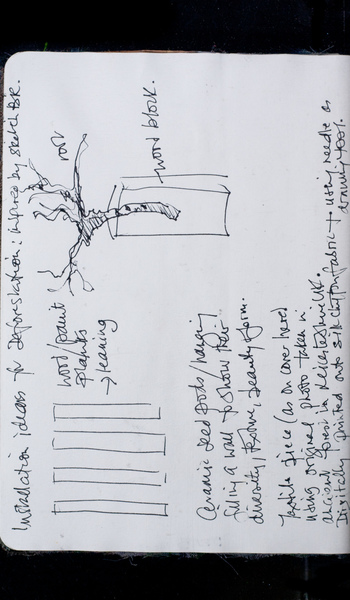 Installation ideas for Deforestation: inspired by sketch BK.
root
wood block.
wood/paint
planks
→ leaning
Ceramic seed pods/hanging
filling a wall to show their
diversity, texture, beauty & form.
Textile piece (as on cover here)
using original photo taken in
ancient forest in Leicestershire UK.
Digitally printed onto silk/cotton fabric → using needle as
drawing tool.